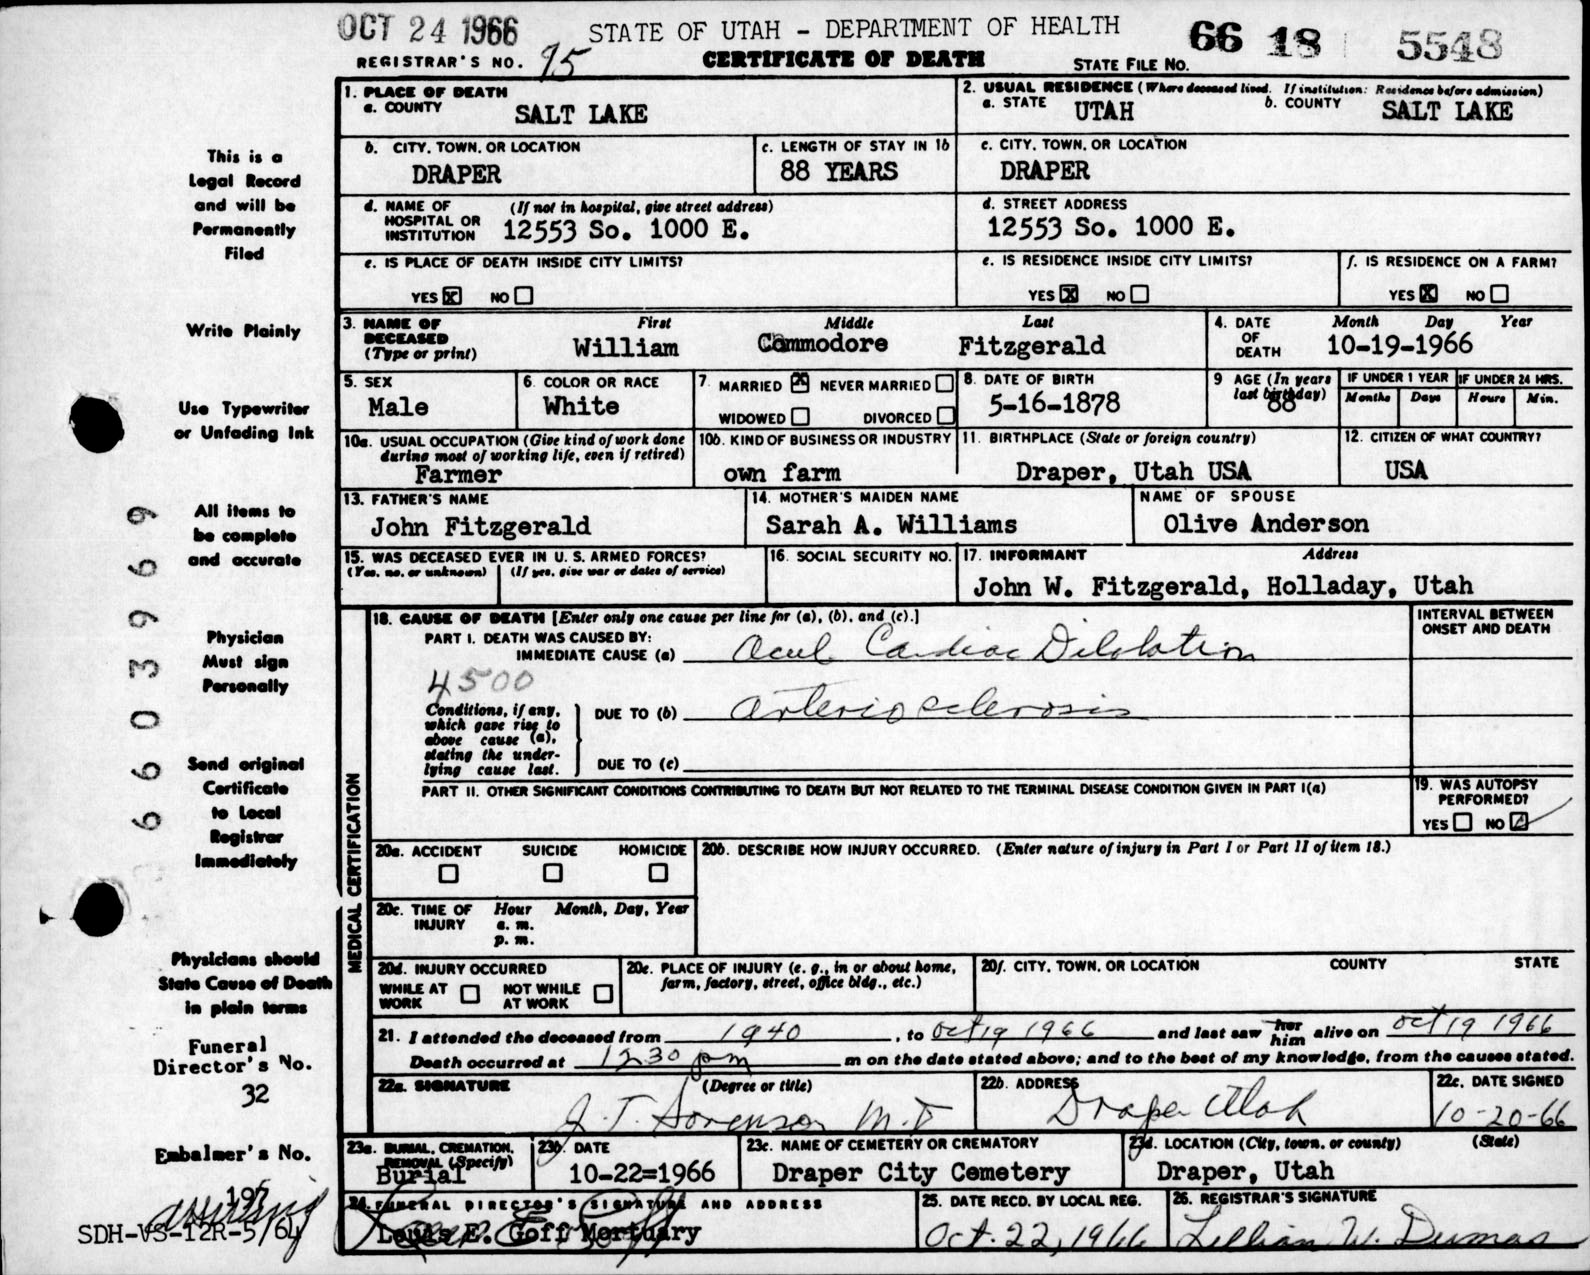 OCT 24 1966 STATE OF UTAH - DEPARTMENT OF HEALTH 66 18 5548
REGISTRAR'S NO. 95 CERTIFICATE OF DEATH STATE FILE NO.
1. PLACE OF DEATH
a. COUNTY SALT LAKE
2. USUAL RESIDENCE (Where deceased lived. If institution: Residence before admission)
a. STATE UTAH b. COUNTY SALT LAKE
b. CITY, TOWN, OR LOCATION DRAPER
c. LENGTH OF STAY IN 1b 88 YEARS
c. CITY, TOWN, OR LOCATION DRAPER
d. NAME OF HOSPITAL OR INSTITUTION (If not in hospital, give street address) 12553 So. 1000 E.
d. STREET ADDRESS 12553 So. 1000 E.
e. IS PLACE OF DEATH INSIDE CITY LIMITS?
YES X NO
e. IS RESIDENCE INSIDE CITY LIMITS?
YES X NO
f. IS RESIDENCE ON A FARM?
YES X NO
3. NAME OF DECEASED (Type or print) First Middle Last
William Commodore Fitzgerald
4. DATE OF DEATH Month Day Year
10-19-1966
5. SEX Male
6. COLOR OR RACE White
7. MARRIED X NEVER MARRIED
WIDOWED DIVORCED
8. DATE OF BIRTH 5-16-1878
9 AGE (In years last birthday) 88
IF UNDER 1 YEAR Months Days
IF UNDER 24 HRS. Hours Min.
10a. USUAL OCCUPATION (Give kind of work done during most of working life, even if retired)
Farmer
10b. KIND OF BUSINESS OR INDUSTRY
own farm
11. BIRTHPLACE (State or foreign country)
Draper, Utah USA
12. CITIZEN OF WHAT COUNTRY?
USA
13. FATHER'S NAME
John Fitzgerald
14. MOTHER'S MAIDEN NAME
Sarah A. Williams
NAME OF SPOUSE
Olive Anderson
15. WAS DECEASED EVER IN U. S. ARMED FORCES?
(Yes, no, or unknown) (If yes, give war or dates of service)
16. SOCIAL SECURITY NO.
17. INFORMANT Address
John W. Fitzgerald, Holladay, Utah
18. CAUSE OF DEATH [Enter only one cause per line for (a), (b), and (c).]
PART I. DEATH WAS CAUSED BY:
IMMEDIATE CAUSE (a) Cardiac Dilatation
INTERVAL BETWEEN ONSET AND DEATH
4500
Conditions, if any, which gave rise to above cause (a), stating the underlying cause last.
DUE TO (b) arteriosclerosis
DUE TO (c)
PART II. OTHER SIGNIFICANT CONDITIONS CONTRIBUTING TO DEATH BUT NOT RELATED TO THE TERMINAL DISEASE CONDITION GIVEN IN PART I(a)
19. WAS AUTOPSY PERFORMED?
YES NO
MEDICAL CERTIFICATION
20a. ACCIDENT SUICIDE HOMICIDE
20b. DESCRIBE HOW INJURY OCCURRED. (Enter nature of injury in Part I or Part II of item 18.)
20c. TIME OF INJURY Hour Month, Day, Year
a. m.
p. m.
20d. INJURY OCCURRED
WHILE AT WORK NOT WHILE AT WORK
20e. PLACE OF INJURY (e. g., in or about home, farm, factory, street, office bldg., etc.)
20f. CITY, TOWN, OR LOCATION COUNTY STATE
21. I attended the deceased from 1940, to Oct 19 1966 and last saw her him alive on Oct 19 1966
Death occurred at 1230 pm m on the date stated above; and to the best of my knowledge, from the causes stated.
22a. SIGNATURE (Degree or title)
J. T. Sorenson M.D
22b. ADDRESS
Draper Utah
22c. DATE SIGNED
10-20-66
23a. BURIAL, CREMATION, REMOVAL (Specify)
Burial
23b. DATE
10-22=1966
23c. NAME OF CEMETERY OR CREMATORY
Draper City Cemetery
23d. LOCATION (City, town, or county) (State)
Draper, Utah
24. FUNERAL DIRECTOR'S SIGNATURE AND ADDRESS
Louis E. Goff Mortuary
25. DATE RECD. BY LOCAL REG.
Oct. 22, 1966
26. REGISTRAR'S SIGNATURE
Lillian W. Dumas
This is a
Legal Record
and will be
Permanently
Filed
Write Plainly
Use Typewriter
or Unfading Ink
All items to
be complete
and accurate
Physician
Must sign
Personally
Send original
Certificate
to Local
Registrar
Immediately
Physicians should
State Cause of Death
in plain terms
Funeral
Director's No.
32
Embalmer's No.
197
SDH-VS-12R-5/64
66 03969